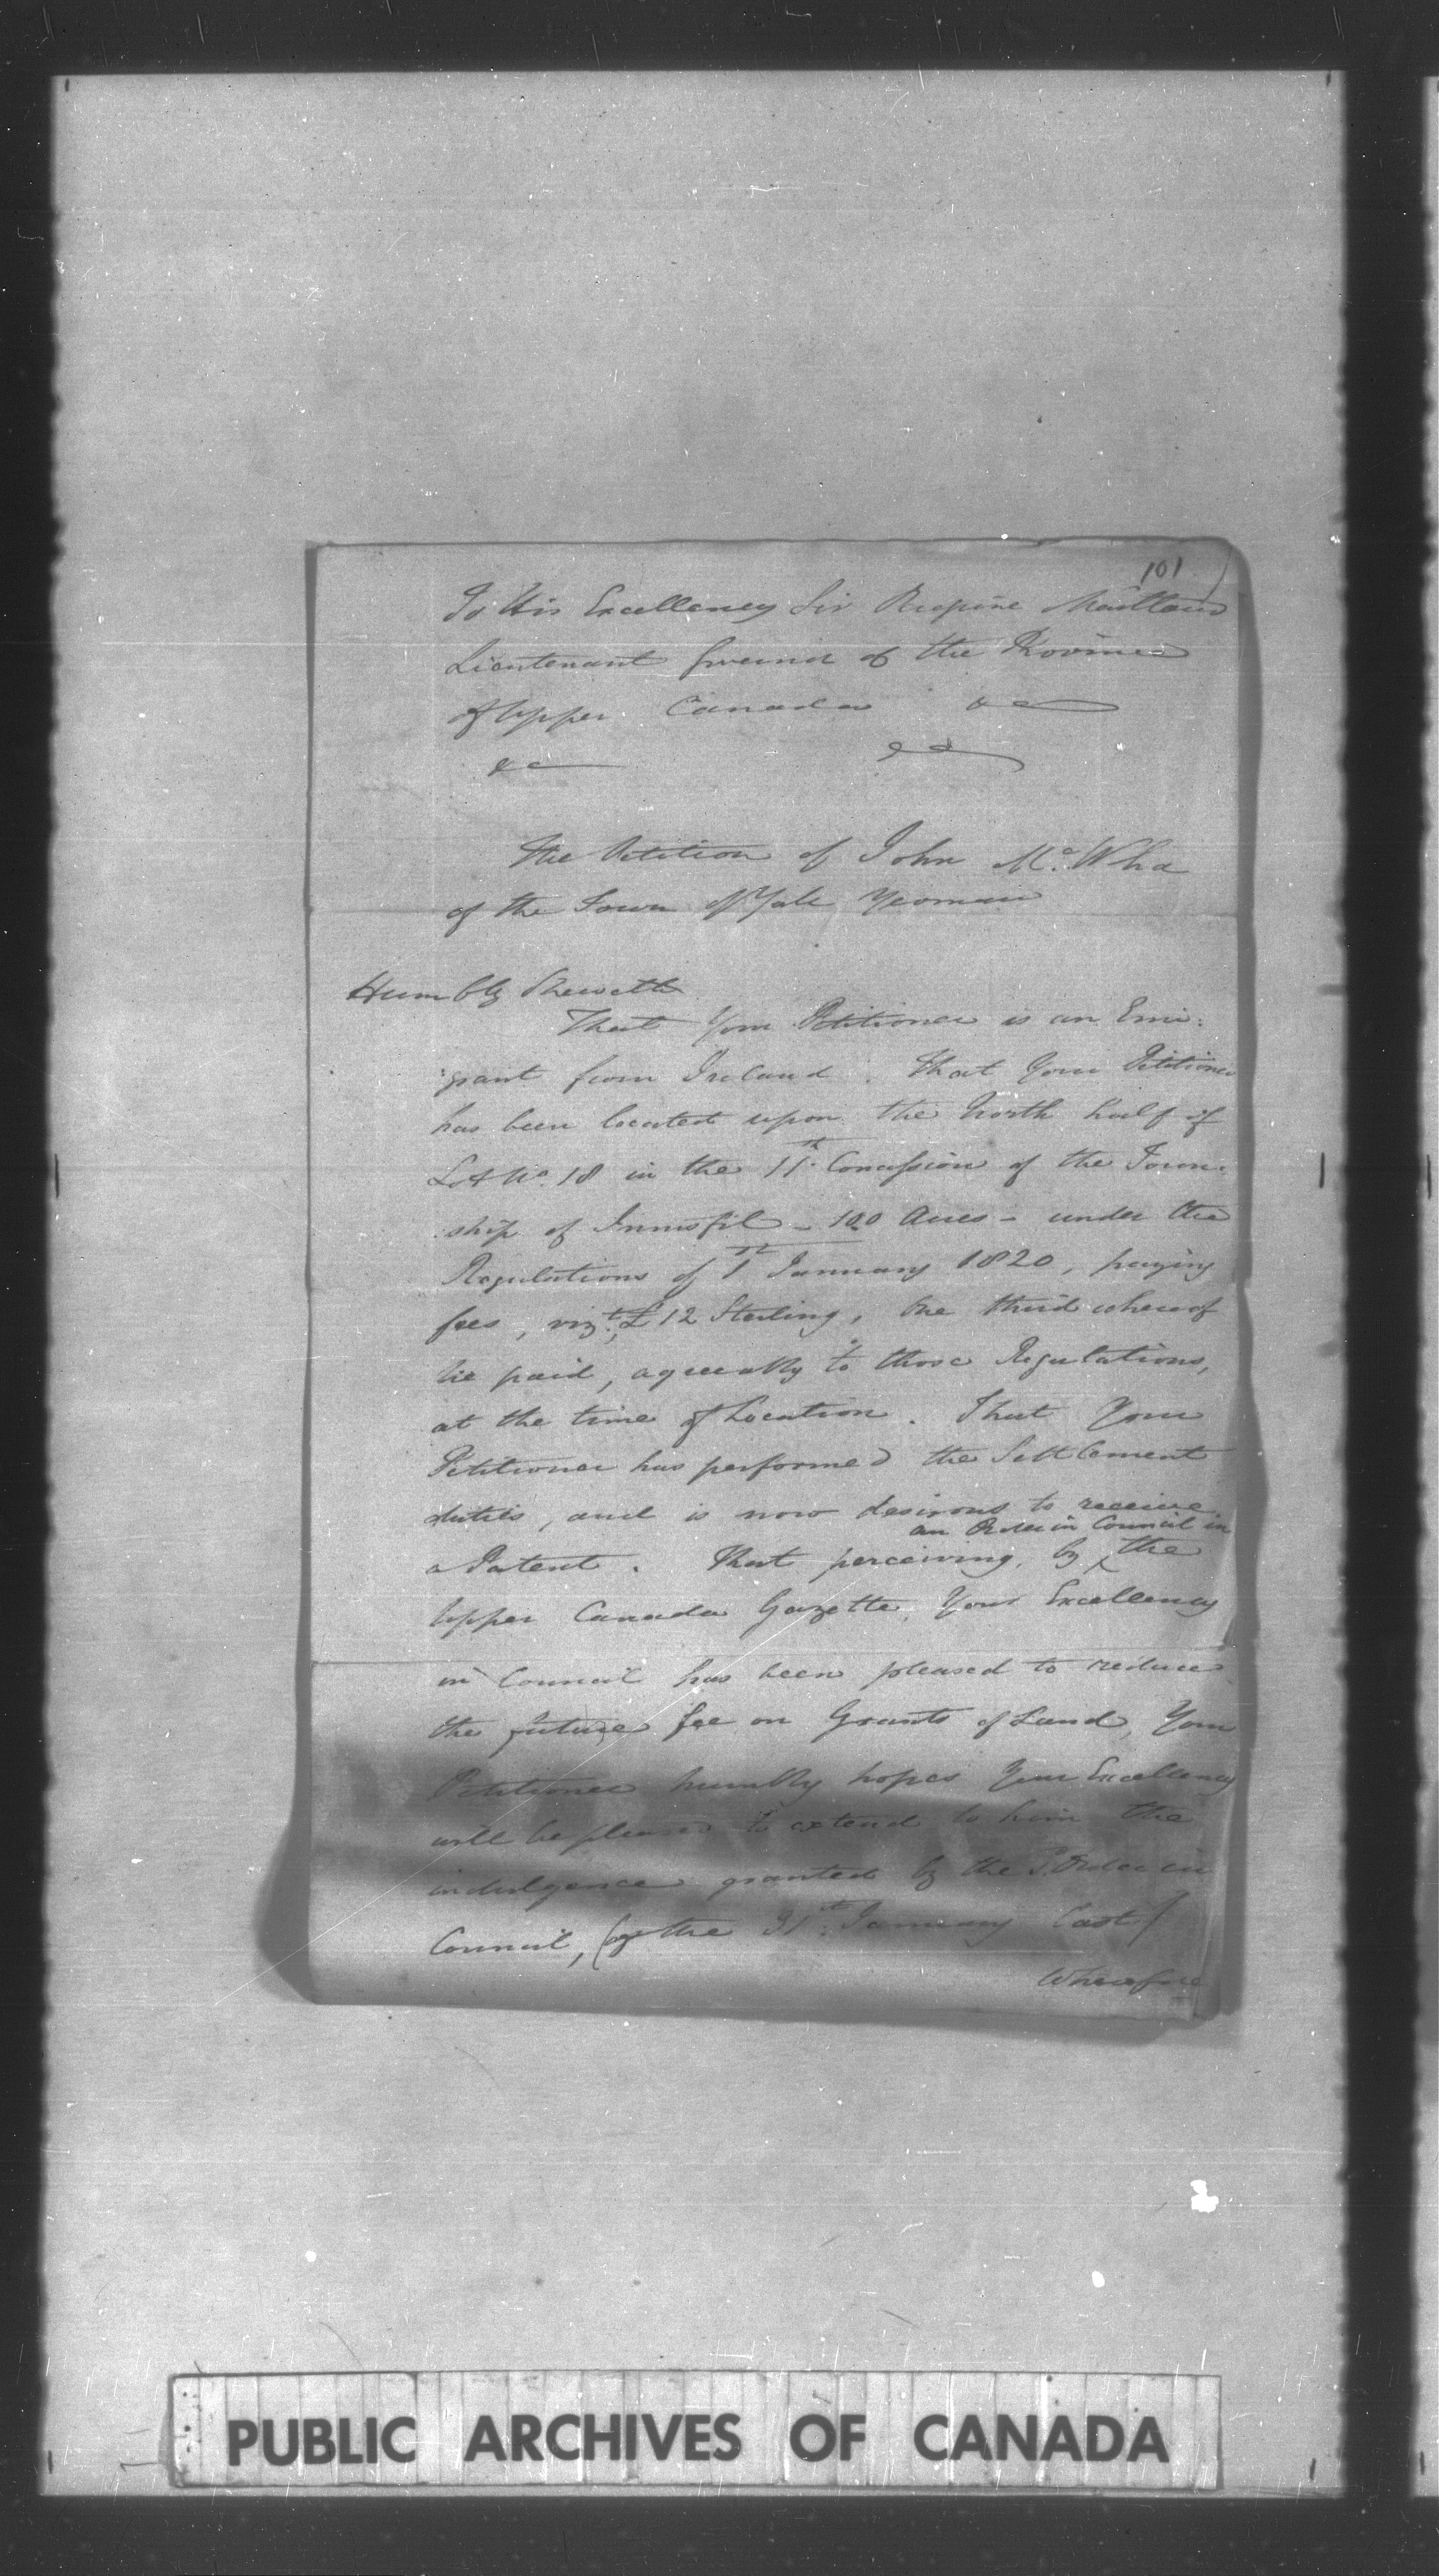 101
To His Excellency Sir Peregrine Maitland
Lieutenant Governor of the Province
of Upper Canada &c
&c &c
The Petition of John Mc. Wha
of the Town of York Yeoman
Humbly Sheweth
That Your Petitioner is an Emi:
:grant from Ireland. That Your Petitioner
has been located upon the North half of
Lot No. 18 in the 11th. Concession of the Town:
:ship of Innisfil - 100 Acres - under the
Regulations of 1st January 1820, paying
fees, vizt., £12 Sterling, One third whereof
he paid, agreeably to those Regulations,
at the time of Location. That Your
Petitioner has performed the Settlement
duties, and is now desirous to receive
an Order in Council in
a Patent. That perceiving, by ^ the
Upper Canada Gazette, Your Excellency
in Council has been pleased to reduce
the future fee on Grants of Land, Your
Petitioner humbly hopes Your Excellency
will be pleased to extend to him the
indulgence granted by the Order in
Council, (of the 31st. January last)
Wherefore
PUBLIC ARCHIVES OF CANADA